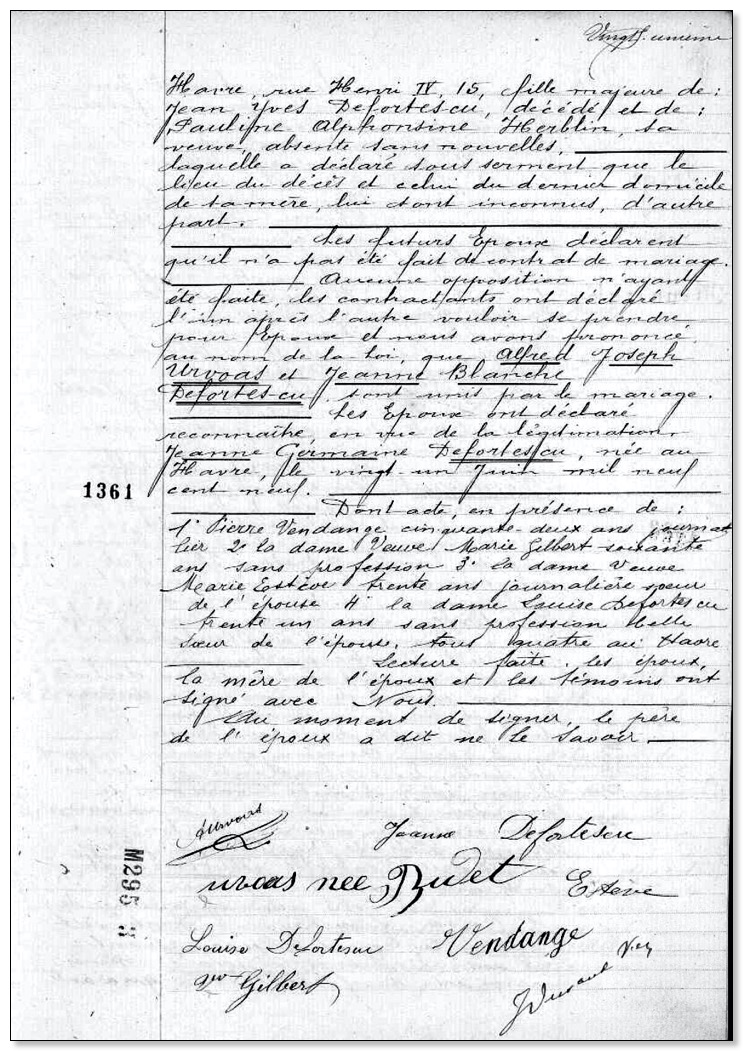 Vingt-unième
Havre, rue Henri IV, 15, fille majeure de :
Jean Yves Defortescu, décédé et de :
Pauline Alphonsine Herblin, sa
veuve, absente sans nouvelles,
laquelle a déclaré sous serment que le
lieu du décès et celui du dernier domicile
de sa mère, lui sont inconnus, d'autre
part.
Les futurs Epoux déclarent
qu'il n'a pas été fait de contrat de mariage.
Aucune opposition n'ayant
été faite, les contractants ont déclaré
l'un après l'autre vouloir se prendre
pour Epoux et nous avons prononcé
au nom de la loi, que Alfred Joseph
Urvoas et Jeanne Blanche
Defortescu sont unis par le mariage.
Les Epoux ont déclaré
reconnaître, en vue de la légitimation
Jeanne Germaine Defortescu, née au
Havre, le vingt un Juin mil neuf
1361
cent neuf.
Dont acte, en présence de :
1° Pierre Vendange cinquante-deux ans journa
lier 2° la dame Veuve Marie Gilbert soixante
ans sans profession 3° la dame Veuve
Marie Estève trente ans journalière sœur
de l'épouse 4° la dame Louise Defortescu
trente un ans sans profession belle
sœur de l'épouse, tous quatre au Havre
Lecture faite, les époux,
la mère de l'époux et les témoins ont
signé avec Nous
Au moment de signer, le père
de l'époux a dit ne le savoir.
AUrvoas
Jeanne Defortescu
urvoas nee Rudet
Estève
M295 3
Louise Defortescu
Vendange
Gilbert